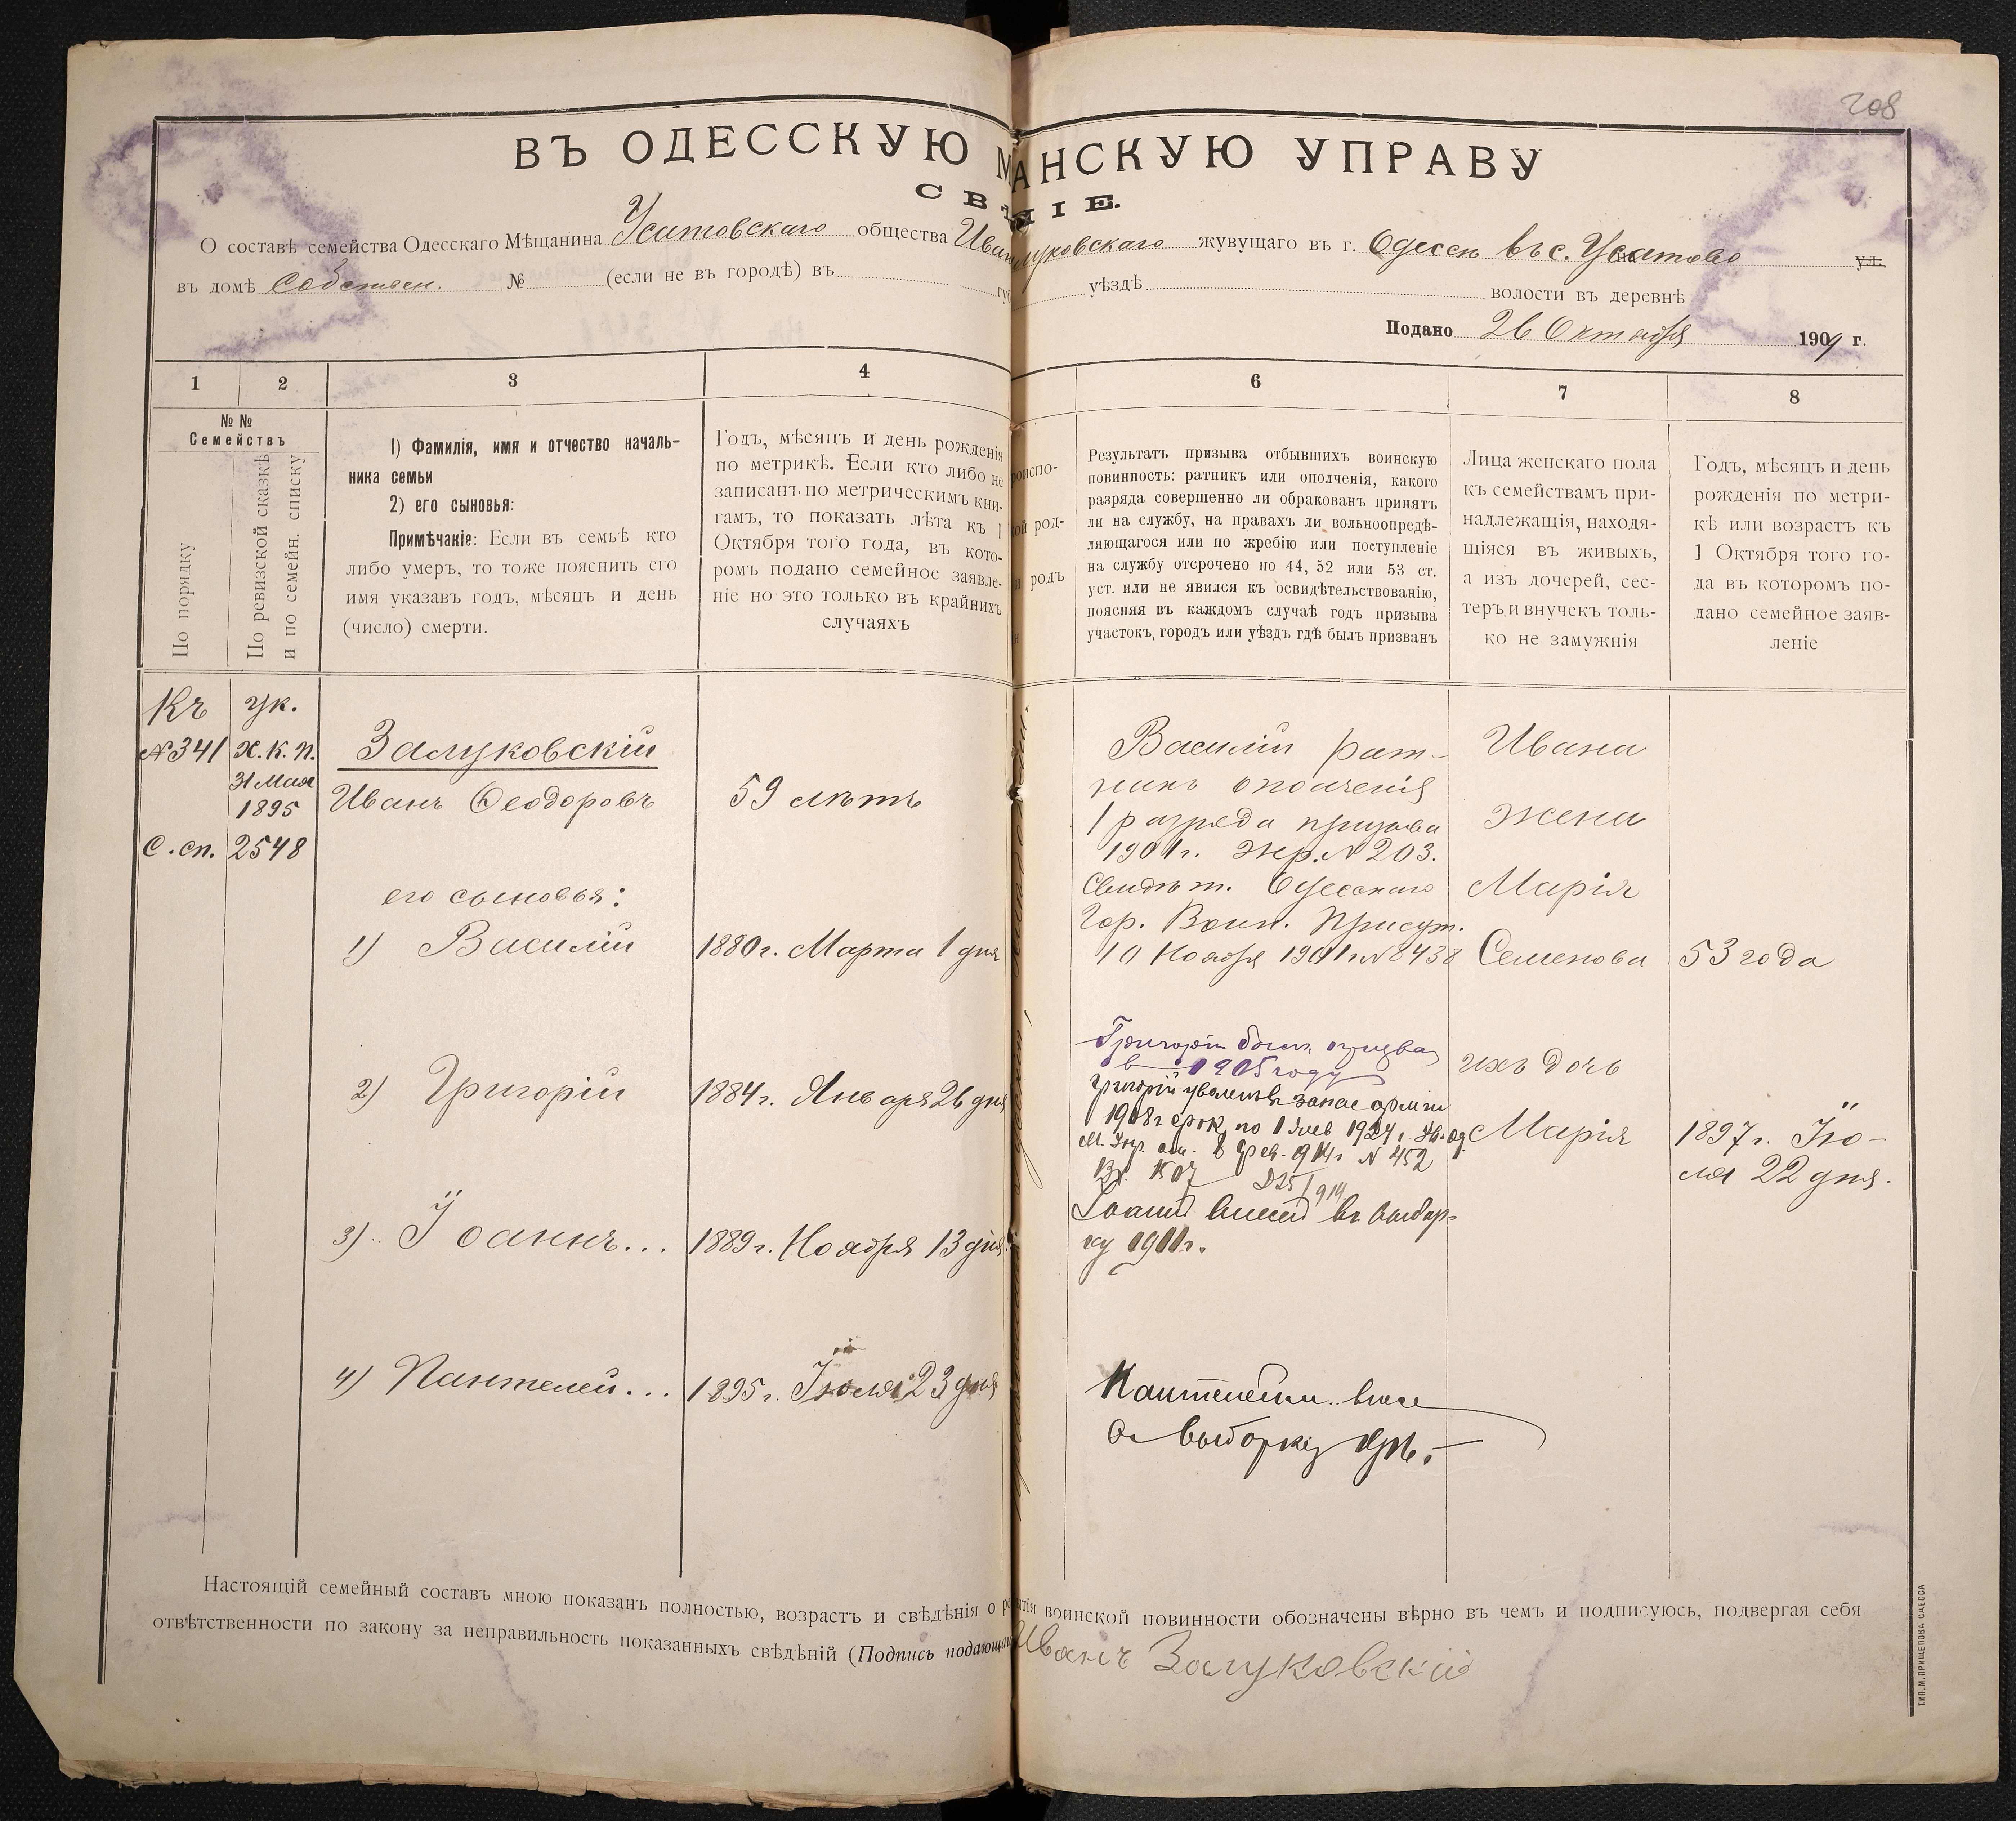 208
ВЪ ОДЕССКУЮ М АНСКУЮ УПРАВУ
СВ НІЕ.
О составѣ семейства Одесскаго Мѣщанина Усатовскаго общества Иван луковскаго жувущаго въ г. Одессѣ въ с. Усатово ул.
въ домѣ Собствен. № (если не въ городѣ) въ уѣздѣ волости въ деревнѣ
Подано 26 Октября 1904 г.
1 2 3 4 6 7 8
№ №
Семействъ
По порядку
По ревизской сказкѣ
и по семейн. списку
1) Фамилія, имя и отчество началь-
ника семьи
2) его сыновья:
Примѣчаніе: Если въ семьѣ кто
либо умеръ, то тоже пояснить его
имя указавъ годъ, мѣсяцъ и день
(число) смерти.
Годъ, мѣсяцъ и день рожденія
по метрикѣ. Если кто либо не
записанъ по метрическимъ кни-
гамъ, то показать лѣта къ 1
Октября того года, въ кото-
ромъ подано семейное заявле-
ніе но это только въ крайнихъ
случаяхъ
роиспо-
кой род-
и родъ
Результатъ призыва отбывшихъ воинскую
повинность: ратникъ или ополченія, какого
разряда совершенно ли обракованъ принятъ
ли на службу, на правахъ ли вольноопредѣ-
ляющагося или по жребію или поступленіе
на службу отсрочено по 44, 52 или 53 ст.
уст. или не явился къ освидѣтельствованію,
поясняя въ каждомъ случаѣ годъ призыва
участокъ, городъ или уѣздъ гдѣ былъ призванъ
Лица женскаго пола
къ семействамъ при-
надлежащія, находя-
щіяся въ живыхъ,
а изъ дочерей, сес-
теръ и внучекъ толь-
ко не замужнія
Годъ, мѣсяцъ и день
рожденія по метри-
кѣ или возрастъ къ
1 Октября того го-
да въ которомъ по-
дано семейное заяв-
леніе
Къ
№341
С. сп.
ук.
Х. К. П.
31 Мая
1895
2548
Залуковскій
Иванъ Ѳеодоровъ
59 лѣтъ
его сыновья:
1) Василій
1880г. Марта 1 дня
2) Григорій
1884г. Января 26 дня
3) Іоаннъ...
1889г. Ноября 13 дня
4) Пантелей...
1895г. Іюля 23 дня
Василій рат-
никъ ополченія
1 разряда призыва
1901г. жер. №203.
Свидѣт. Одесскаго
Гор. Воин. Присут.
10 Ноября 1901г №8438
Григорій былъ призван
в 1905 году
Григорій уволенъ в запас арміи
1908г срок по 1 Янв 1924г.
№ 452
Іоаннъ внесенъ въ выбор-
ку 1911г.
выборку
Ивана
жена
Марія
Семенова
53 года
ихъ дочь
Марія
1897г. Ію-
ля 22 дня.
Настоящій семейный составъ мною показанъ полностью, возрастъ и свѣдѣнія о воинской повинности обозначены вѣрно въ чемъ и подписуюсь, подвергая себя
отвѣтственности по закону за неправильность показанныхъ свѣдѣній (Подпись подающаго
Иванъ Залуковскій
ТИП. М. ПРИЩЕПОВА ОДЕССА